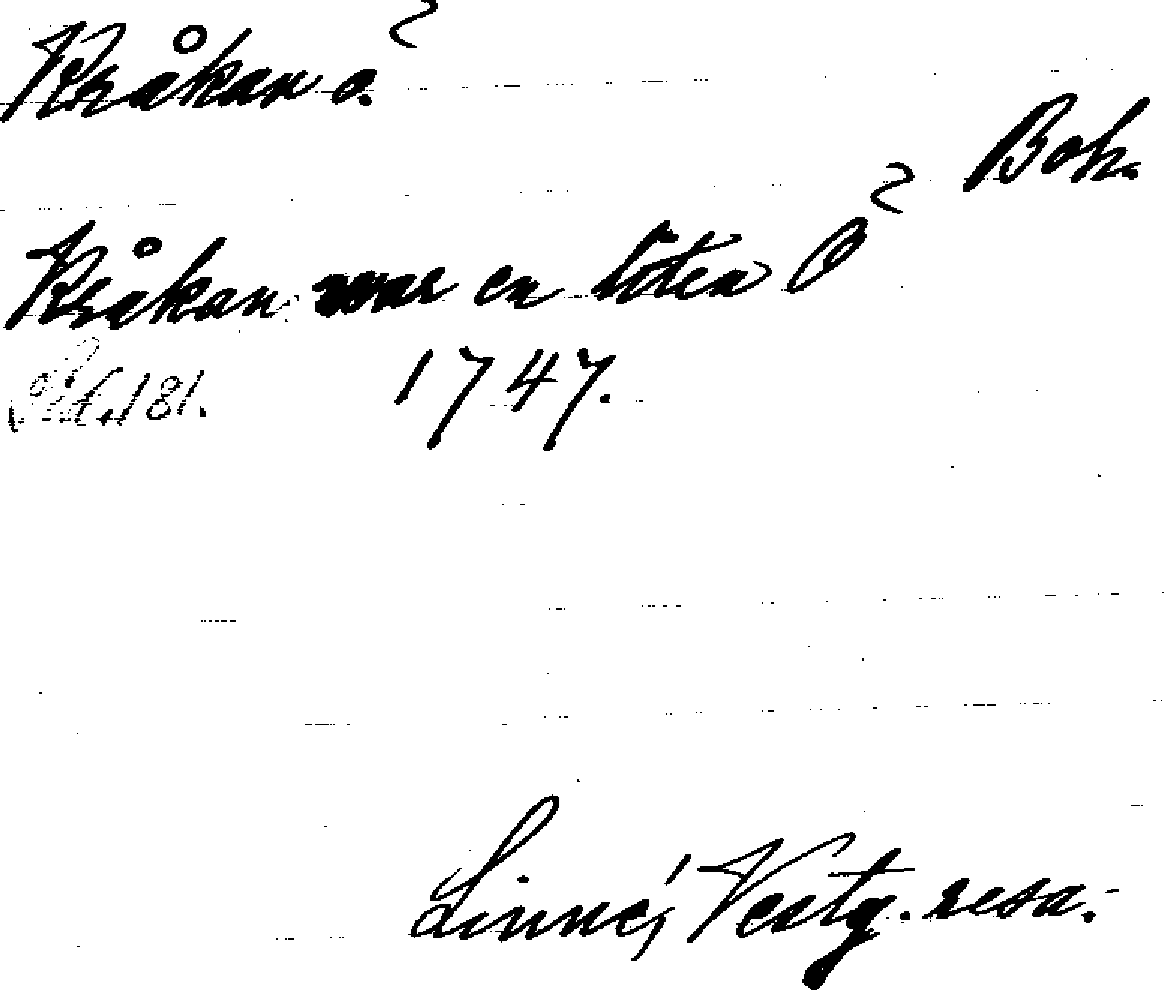 Kråkan ö.
Boh.
Kråkan war en liten Ö
181. 1747.
Linné, Vestg. resa.